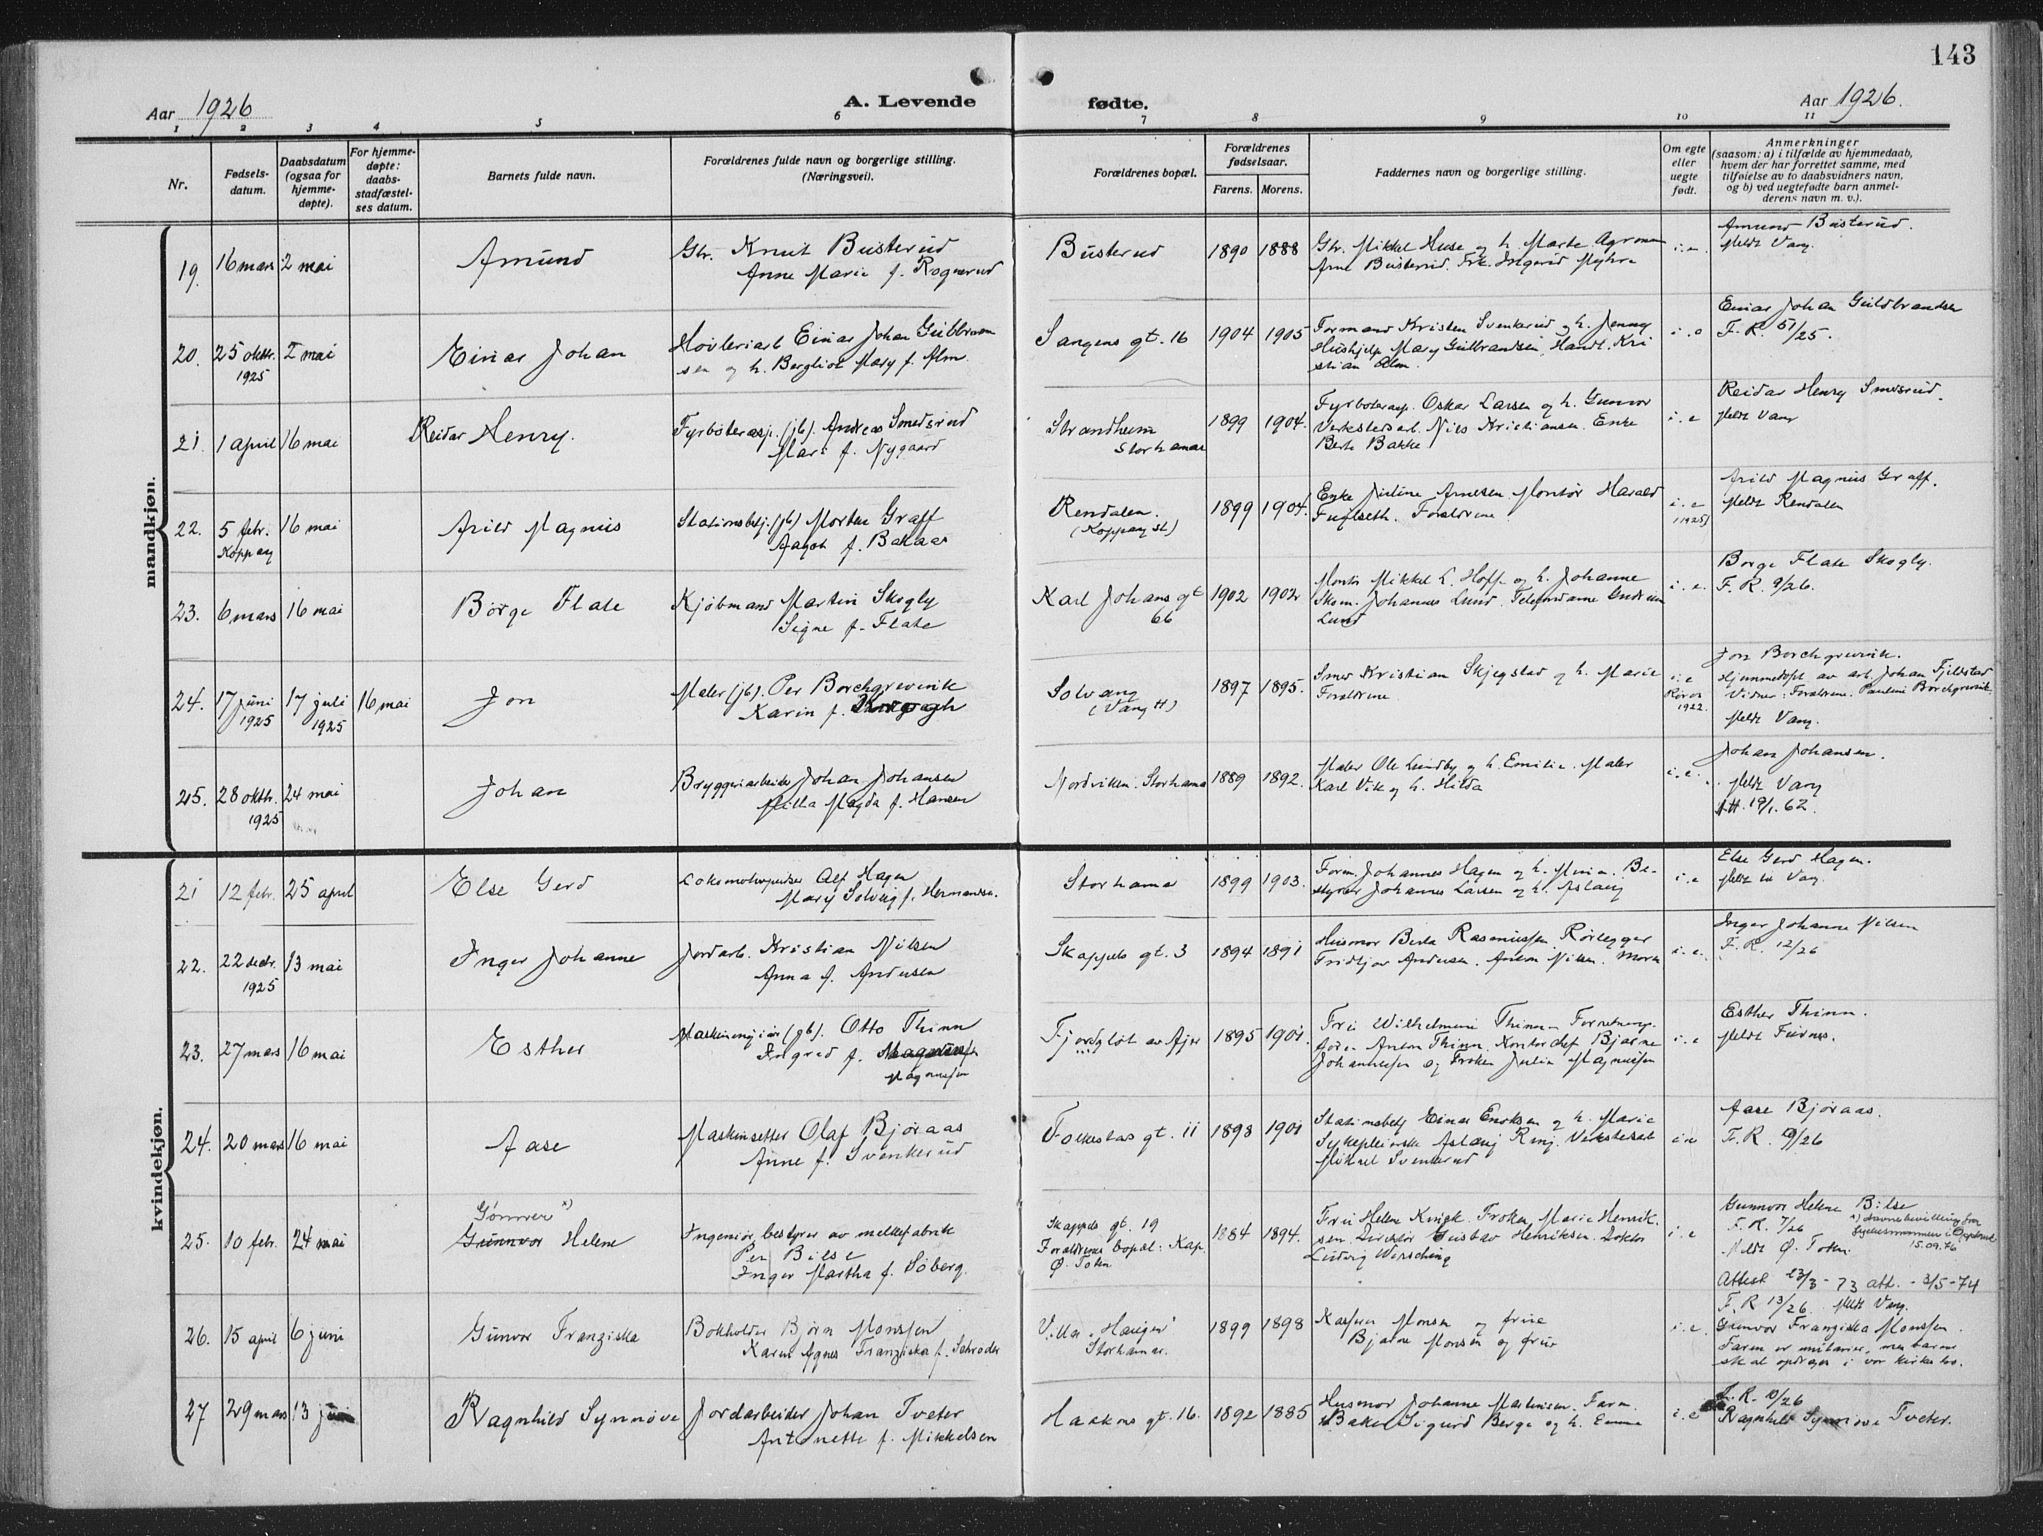 143
Aar 1926
A. Levende
fødte.
Aar 1926.
1 2 3 4 5 6 7 8 9 10 11
Nr.
Fødsels-
datum.
Daabsdatum
(ogsaa for
hjemme-
døpte).
For hjemme-
døpte:
daabs-
stadfæstel-
ses datum.
Barnets fulde navn.
Forældrenes fulde navn og borgerlige stilling.
(Næringsvei).
Forældrenes bopæl.
Forældrenes
fødselsaar.
Farens. Morens.
Faddernes navn og borgerlige stilling.
Om egte
eller
uegte
født.
Anmerkninger
(saasom: a) i tilfælde av hjemmedaab,
hvem der har forrettet samme, med
tilføielse av to daabsvidners navn,
og b) ved uegtefødte barn anmel-
derens navn m. v.).
mandkjøn.
19. 16 mars 2 mai
Amund
Gbr. Knut Busterud
Anne Marie f. Rognerud
Busterud
1890 1888
Gbr. Mikkel Huse og h. Marte Agronom
Arne Busterud. Frk. Ingerid Myhre
i. e.
Amund Busterud.
Meldt Vang
20. 25 oktbr. 2 mai
1925
Einar Johan
Høvleriarb Einar Johan Gulbran
sen og h. Bergliot Mary f. Alm
Sangens gt. 16
1904 1905
Formand Kristen Svenkerud og h. Jenny
Hushjelp Mary Gulbrandsen, Handl. Kri
stian Alm.
Einar Johan Guldbrandsen
F. R. 51/25.
21. 1 april 16 mai
Reidar Henry.
Fyrbøterasp. (jb). Andreas Smedsrud
Mari f. Nygaard
Strandheim
Storhamar
1899 1904.
Fyrbøterasp. Oskar Larsen og h. Gunvor
Verkstedsarb. Nils Kristiansen. Enke
Berte Bakke
i. e
Reidar Henry Smedsrud.
Meldt Vang
22. 5 febr. 16 mai
Koppang
Arild Magnus
Stationsbetj. (jb) Morten Graff
Aagot f. Bakaas
Rendalen.
(Koppang st)
1899 1904.
Enke Juline Arnesen. Montør Harald
Fuglseth. Forældrene
i. e
(1925)
Arild Magnus Graff.
Meldt Rendalen
23. 6 mars 16 mai
Børge Flate
Kjøbmand Martin Skogly
Signe f. Flate
Karl Johans gt
66
1902 1902
Montør Mikkel L. Hoff og h. Johanne
Skom. Johannes Lund. Telefondame Gudrun
Lund
i. e.
Børge Flate Skogly.
F. R. 9/26.
24. 17 juni 17 juli 16 mai
1925 1925
Jon
Maler (jb). Per Borchgrevink
Karin f.
Solvang
(Vang H)
1897 1895.
Smed Kristian Skjegstad og h. Marie
Forældrene
i. e
Røros
1922.
Jon Borchgrevink.
Hjemmedøpt av arb. Johan Fjeldstad
Vidner: Forældrene. Pauline Borchgrevink
Meldt Vang.
25. 28 oktbr. 24 mai
1925
Johan
Bryggeriarbeider Johan Johansen
Milla Magda f. Hansen
Nordviken. Storhamar
1889 1892.
Maler Ole Lundby og h. Emilie. Maler
Karl Vik og h. Hilda
i. e.
Johan Johansen.
Meldt Vang
Att. 19/1. 62.
kvindekjøn.
21 12 febr. 25 april
Else Gerd
Lokomotivpudser Alf Hagen
Mary Solveig f. Hermansen.
Storhamar
1899 1903.
Form. Johannes Hagen og h. Mina. Be-
styrer Johannes Larsen og h. Aslaug
i. e
Else Gerd Hagen.
Meldt til Vang.
22. 22 decbr. 13 mai
1925
Inger Johanne
Jordarb. Kristian Nilsen
Anna f. Andersen
Skappels gt. 3
1894 1891
Husmor Berta Rasmussen Rørlegger
Fridtjov Andersen. Anton Nilsen. Moren
i. e.
Inger Johanne Nilsen
F. R. 12/26
23. 27 mars 16 mai
Esther
Maskiningiør (gb). Otto Thinn
Ingrid f. Magnussen
Magnussen
Fjordgløt av Ajer
1895 1901.
Frü Wilhelmine Thinn Forretnings-
fører Anton Thinn. Kontorchef Bjarne
Johannessen og Frøken Julia Magnussen
i. e
Esther Thinn.
Meldt Furnes.
24. 20 mars 16 mai
Aase
Maskinsetter Olaf Bjøraas
Anne f. Svenkerud
Folkestads gt. 11
1898 1901
Stationsbetj Einar Eriksen og h. Marie
Sykepleierske Aslaug Ring. Verkstedarb
Mikael Svenkerud
i. e
Aase Bjøraas.
F. R. 19/26
25. 10 febr. 24 mai
Gønner x)
Gunnvor Helene
Ingeniør, bestyrer av melkefabrik
Per Bilse
Inger Martha f. Søberg.
Skappels gt. 19
Forældrenes bopæl: Kap.
Ø. Toten
1884 1894.
Frü Helene Krigk. Frøken Marie Henrik-
sen. Direktør Gustav Henriksen. Doktor
Ludvig Wersching
i. e
Gunnvor Helene Bilse
F. R. 7/26
x) Navnebevilling fra
Fylkesmannen i Oppland
15.09.76
Meldt Ø. Toten.
Attest 23/3 - 73 att. - 3/5 - 74
26. 15 april 6 juni
Gunvor Franziska
Bokholder Bjørn Monssen
Karen Agnes Franziska f. Schrøder
Villa „Haugen"
Storhamar.
1899 1898
Kasserer Monsen og frue
Bjarne Monsen og frue
i. e.
F. R 13/26. Meldt Vang.
Gunvor Franziska Monssen.
Faren er unitarier, men barnet
skal opdrages i vor kirkes tro.
27 29 mars 13 juni
Ragnhild Synnøve
Jordarbeider Johan Tveter
Antonette f. Mikkelsen
Haakons gt. 16.
1892 1885
Husmor Johanne Martinsen. Farm.
Baker Sigurd Berge og h. Emma
i. e
F. R. 10/26
Ragnhild Synnøve Tveter.